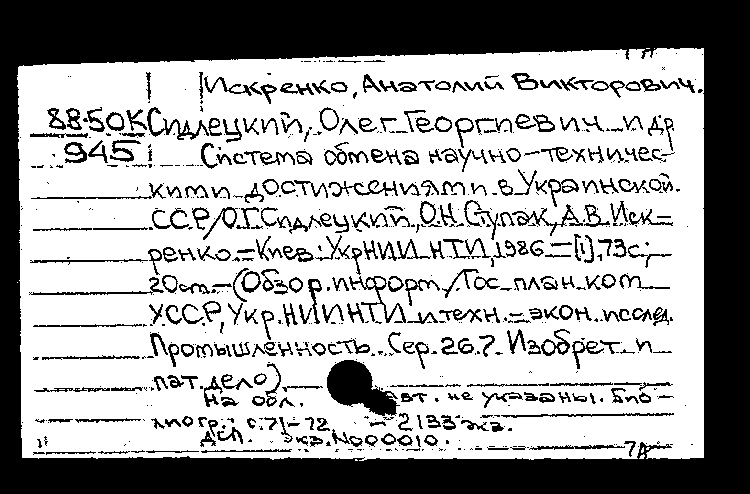 Искренко, Анатолий Викторович.
88-50К Сидлецкий, Олег Георгиевич и др
945 Система обмена научно-техничес-
кими достижениями в Украинской
ССР/О.Г.Сидлецкий, О.Н.Ступак, А.В.Иск-
ренко.-Киев: УкрНИИНТИ, 1986.-[1], 73с;
20см.-(Обзор. информ/Гос. план. ком
УССР, Укр.НИИНТИ и техн.-экон. исслед.
Промышленность. Сер. 26.7. Изобрет. и
пат. дело).
На обл. авт. не указаны. Биб-
лиогр.: с.71-72. - 2133 экз.
ДСП. Экз.№000010.
7А